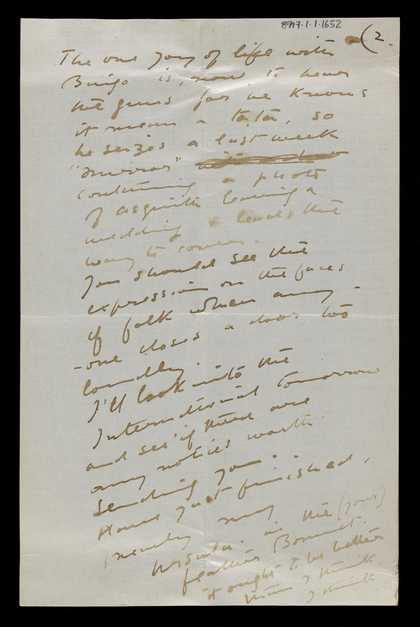 8717.1.1.1652
(2.
The one joy of life with
Bingo is, now to hear
the guns for he knows
it means a ta ta, so
he seizes a last week
"Mirror"
containing a photo
of Asquith leaving a
wedding & leads the
way to cover.
You should see the
expression on the faces
of folk when any
-one closes a door too
loudly.
I'll look into the
International tomorrow
and see if there are
any notices worth
sending you.
Have just finished,
nearly my
in the (your)
feather Bonnet.
it ought to be better
than I think
I think